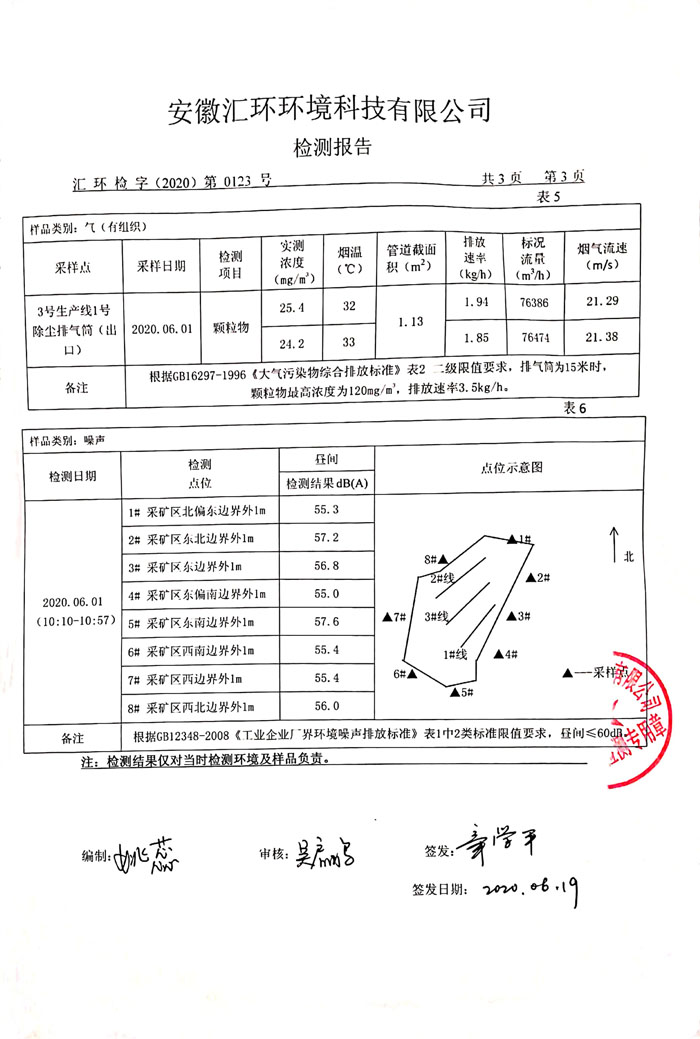 安徽汇环环境科技有限公司
检测报告
汇环检字（2020）第 0123 号 共3页 第3页
表5
样品类别：气（有组织）
采样点 采样日期 检测项目 实测浓度（mg/m³） 烟温（℃） 管道截面积（m²） 排放速率（kg/h） 标况流量（m³/h） 烟气流速（m/s）
3号生产线1号除尘排气筒（出口） 2020.06.01 颗粒物 25.4 32 1.13 1.94 76386 21.29
24.2 33 1.85 76474 21.38
备注 根据GB16297-1996《大气污染物综合排放标准》表2 二级限值要求，排气筒为15米时，
颗粒物最高浓度为120mg/m³，排放速率3.5kg/h。
表6
样品类别：噪声
检测日期 检测点位 昼间 点位示意图
检测结果dB(A)
2020.06.01
(10:10-10:57)
1# 采矿区北偏东边界外1m 55.3
2# 采矿区东北边界外1m 57.2
3# 采矿区东边界外1m 56.8
4# 采矿区东偏南边界外1m 55.0
5# 采矿区东南边界外1m 57.6
6# 采矿区西南边界外1m 55.4
7# 采矿区西边界外1m 55.4
8# 采矿区西北边界外1m 56.0
▲1#
北
8#▲
2#线
▲2#
▲7#
3#线
▲3#
1#线
▲4#
6#▲
▲5#
▲---采样点
备注 根据GB12348-2008《工业企业厂界环境噪声排放标准》表1中2类标准限值要求，昼间≤60dB。
有限公司
专用章
注：检测结果仅对当时检测环境及样品负责。
编制： 审核： 签发：章学平
签发日期：2020.06.19